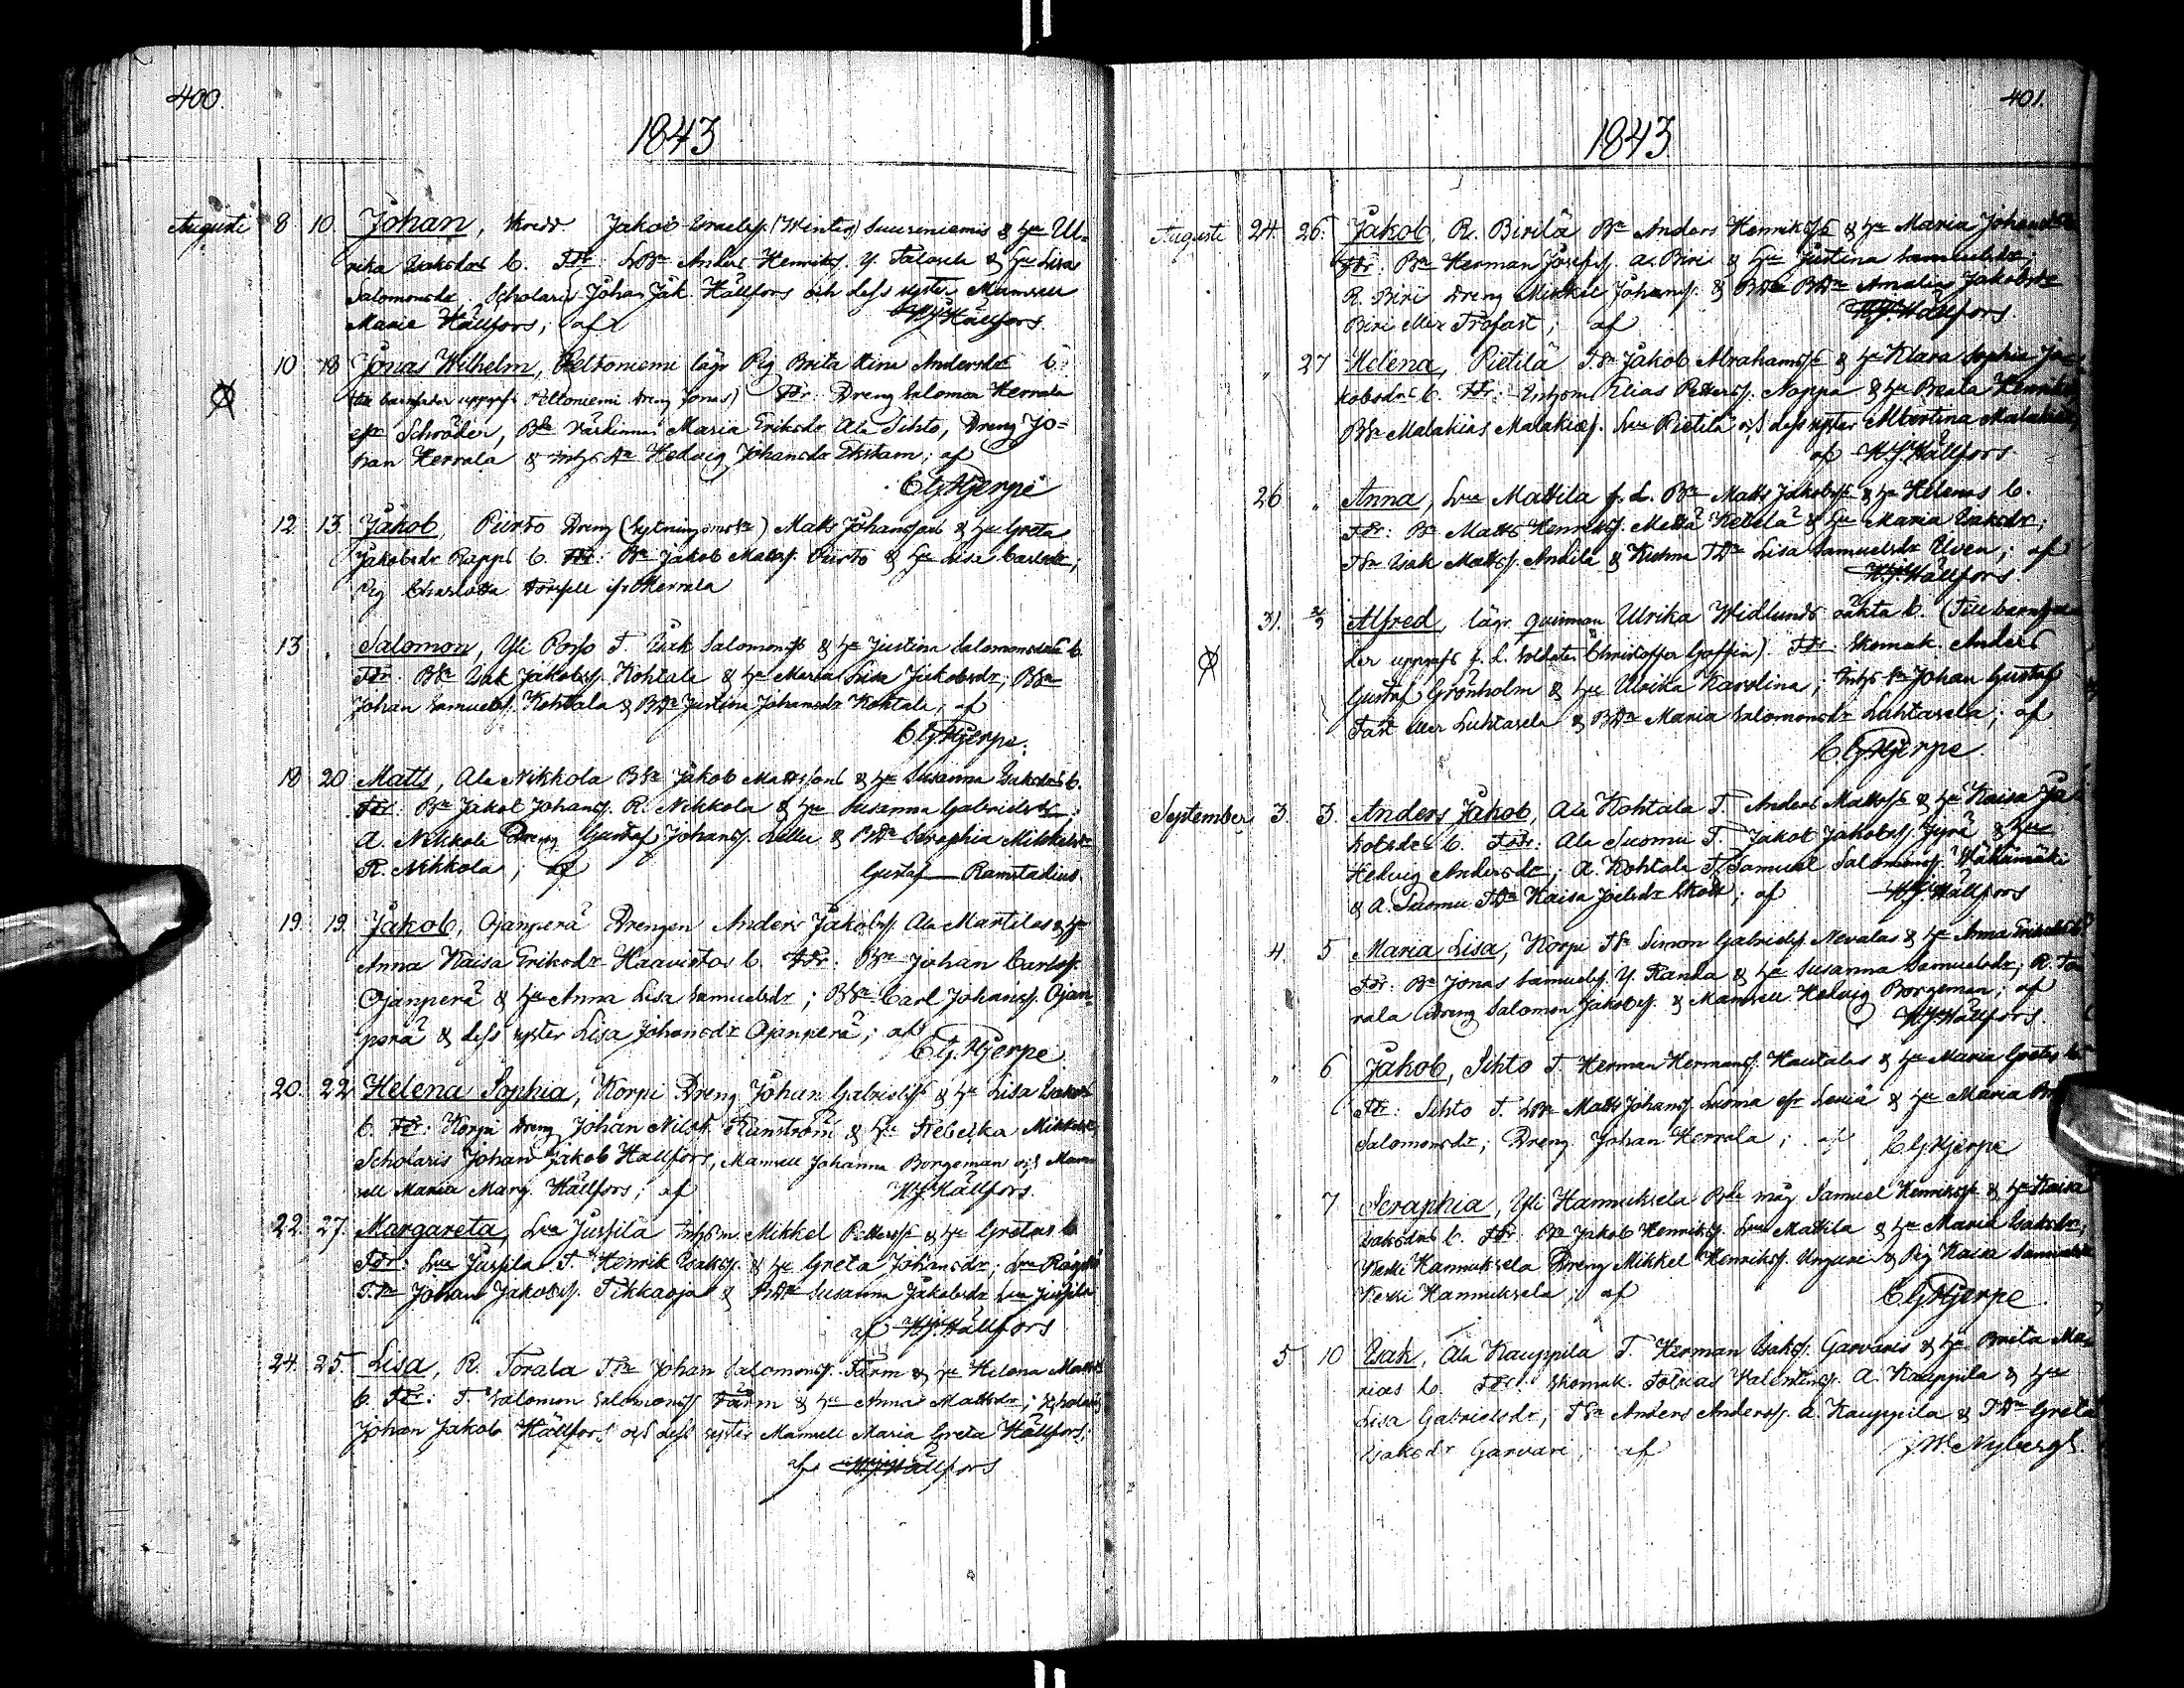 400.
1843
Augusti 8 10. Johan, Jakob Israelss. (Winter) Suuseniemis & Hu Ul-
rika Isaksdrs b. Fdr: LBn Anders Henrikss. Y. Talasela & Hu Lisa
Salomonsdr. Scholaris Johan Jak. Hällfors och dess syster Mamsell
Maria Hällfors; af HJHällfors
10 18 Jonas Wilhelm, Peltoniemi lägr Pig Brita Stina Andersdrs b.
(till barnfader uppgifs Peltoniemi Dreng Jonas) Fdr: Dreng Salomon Herrala
Schröder, Wärdinnan Maria Eriksdr Ala Sihto, Dreng Jo-
han Herrala & Hedvig Johansdr Ekstam; af
CGHjerpe
12. 13. Jakob, Purto Dreng Matts Johanssons & Hu Greta
Jakobsdr Rapps b. Fdr: Bn Jakob Matss. Purto & Hu Lisa Carlsdr;
Pig Charlotta Herrala
13 " Salomon, Yli Porso T. Isak Salomonss & Hu Justina Salomonsdrs b.
Fdr: BSn Isak Jakobss. Kohtala & Hu Maria Lisa Jakobsdr; BSn
Johan Samuelss. Kohtala & BDr Justina Johansdr Kohtala; af
CGHjerpe.
18 20 Matts, Ala Nikkola BSn Jakob Mattssons & Hu Susanna Isaksdrs b.
Fdr: Bn Jakob Johanss. R. Nikkola & Hu Susanna Gabrielsdr;
A. Nikkola Dreng Gustaf Johanss. & BDr Seraphia Mikkelsdr
R. Nikkola; af Gustaf Ramstadius
19. 19. Jakob, Ojanperä Drengen Anders Jakobss. Ala Martilas & Hu
Anna Kaisa Eriksdr Haavistos b. Fdr: Bn Johan Carlss.
Ojanperä & Hu Anna Lisa Samuelsdr; BSn Carl Johanss. Ojan-
perä & dess syster Lisa Johansdr Ojanperä; af
CG.Hjerpe
20. 22 Helena Sophia, Korpi Dreng Johan Gabrielss & Hu Lisa Isaksdrs
b. Fdr: Korpi Dreng Johan Nilss. Ranström & Hu Rebecka Mikkelsdr
Scholaris Johan Jakob Hällfors, Mamsell Johanna Borgeman och Mam-
sell Maria Marg. Hällfors; af HJHällfors.
22. 27. Margareta, Lma Jussila Inhys m. Mikkel Petterss & Hu Gretas b.
Fdr: Lma Jussila T. Henrik Isakss. & Hu Greta Johansdr;
T.Sn Johan Jakobss. Tikkaoja & BDr Susanna Jakobsdr Lma Jussila
af HJHällfors
24. 25. Lisa, R. Torala TSn Johan Salomonss. Farm & Hu Helena Mattsdrs
b. Fdr: T. Salomon Salomonss Farm & Hu Anna Mattsdr; Scholaris
Johan Jakob Hällfors och dess syster Mamsell Maria Greta Hällfors;
af HJHällfors
401.
1843.
Augusti 24. 26. Jakob, R. Birilä Bn Anders Henrikss & Hu Maria Johansdrs
Fdr: Bn Herman Josefss. A. Biri & Hu Justina Samuelsdr;
R. Biri Dreng Mikkel Johanss. & BDr Amalia Jakobsdr
Biri eller Trofast; af HJHällfors.
" 27 Helena, Pietilä T.Sn Jakob Abrahamss & Hu Klara Sophia Ja-
kobsdrs b. Fdr: Inhysm Elias Petterss. Noppa & Hu Beata Henriksdr
BSn Malakias Malakiass. Lma Pietilä och dess syster Albertina Malakiasdr
af HJHällfors.
26 " Anna, Lma Mattila f.d. Bn Matts Jakobss & Hu Helenas b.
Fdr: Bn Matts Henrikss. Ketelä & Hu Maria Isaksdr;
TSn Isak Mattss. Andila & TDr Lisa Samuelsdr Ulven; af
HJHällfors.
31. 2/9 Alfred, lägr. quinnan Ulrika Widlunds oäkta b. (Till barnfa-
der uppgifs f.d. Soldaten Christoffer Goffin). Fdr: Skomak. Anders
Gustaf Grönholm & Hu Ulrika Karolina; Johan Gustaf
Fast eller Luhtasela & BDr Maria Salomonsdr Luhtasela; af
CGHjerpe
September 3. 3. Anders Jakob, Ala Kohtala T. Anders Mattss & Hu Kaisa Ja-
kobsdrs b. Fdr: Ala Suomu T. Jakob Jakobss. Jyrä & Hu
Hedvig Andersdr; A. Kohtala T. Samuel Salomonss. Wähämäki
& A. Suomu TDr Kaisa Joelsdr; af HJHällfors
4. 5 Maria Lisa, Korpi TSn Simon Gabrielss. Nevalas & Hu Anna Eriksdrs b.
Fdr: Bn Jonas Samuelss. Y. Ranta & Hu Susanna Samuelsdr; R. To-
rala Dreng Salomon Jakobss. & Mamsell Hedvig Borgeman; af
HJHällfors.
" 6 Jakob, Sihto T. Herman Hermanss. Hautalas & Hu Maria Gretas b.
Fdr: Sihto T. Matts Johanss. Luoma & Hu Maria
Salomonsdr; Dreng Johan Herrala; af CGHjerpe
" 7 Seraphia, Yli Hannuksela Bde måg Samuel Henrikss & Hu Kaisa
Isaksdrs b. Fdr: Bn Jakob Henrikss. Lma Mattila & Hu Maria Isaksdr;
Keski Hannuksela Dreng Mikkel Henrikss. & Pig Kaisa Samuelsdr
Keski Hannuksela; af CGHjerpe.
5 10 Isak, Ala Kauppila T. Herman Isakss. Garvaris & Hu Brita Ma-
rias b. Fdr: Skomak. Tobias Valentinss. A. Kauppila & Hu
Lisa Gabrielsdr; TSn Anders Anderss. A. Kauppila & TDr Greta
Isaksdr Garvare; af J.W. Nybergh.